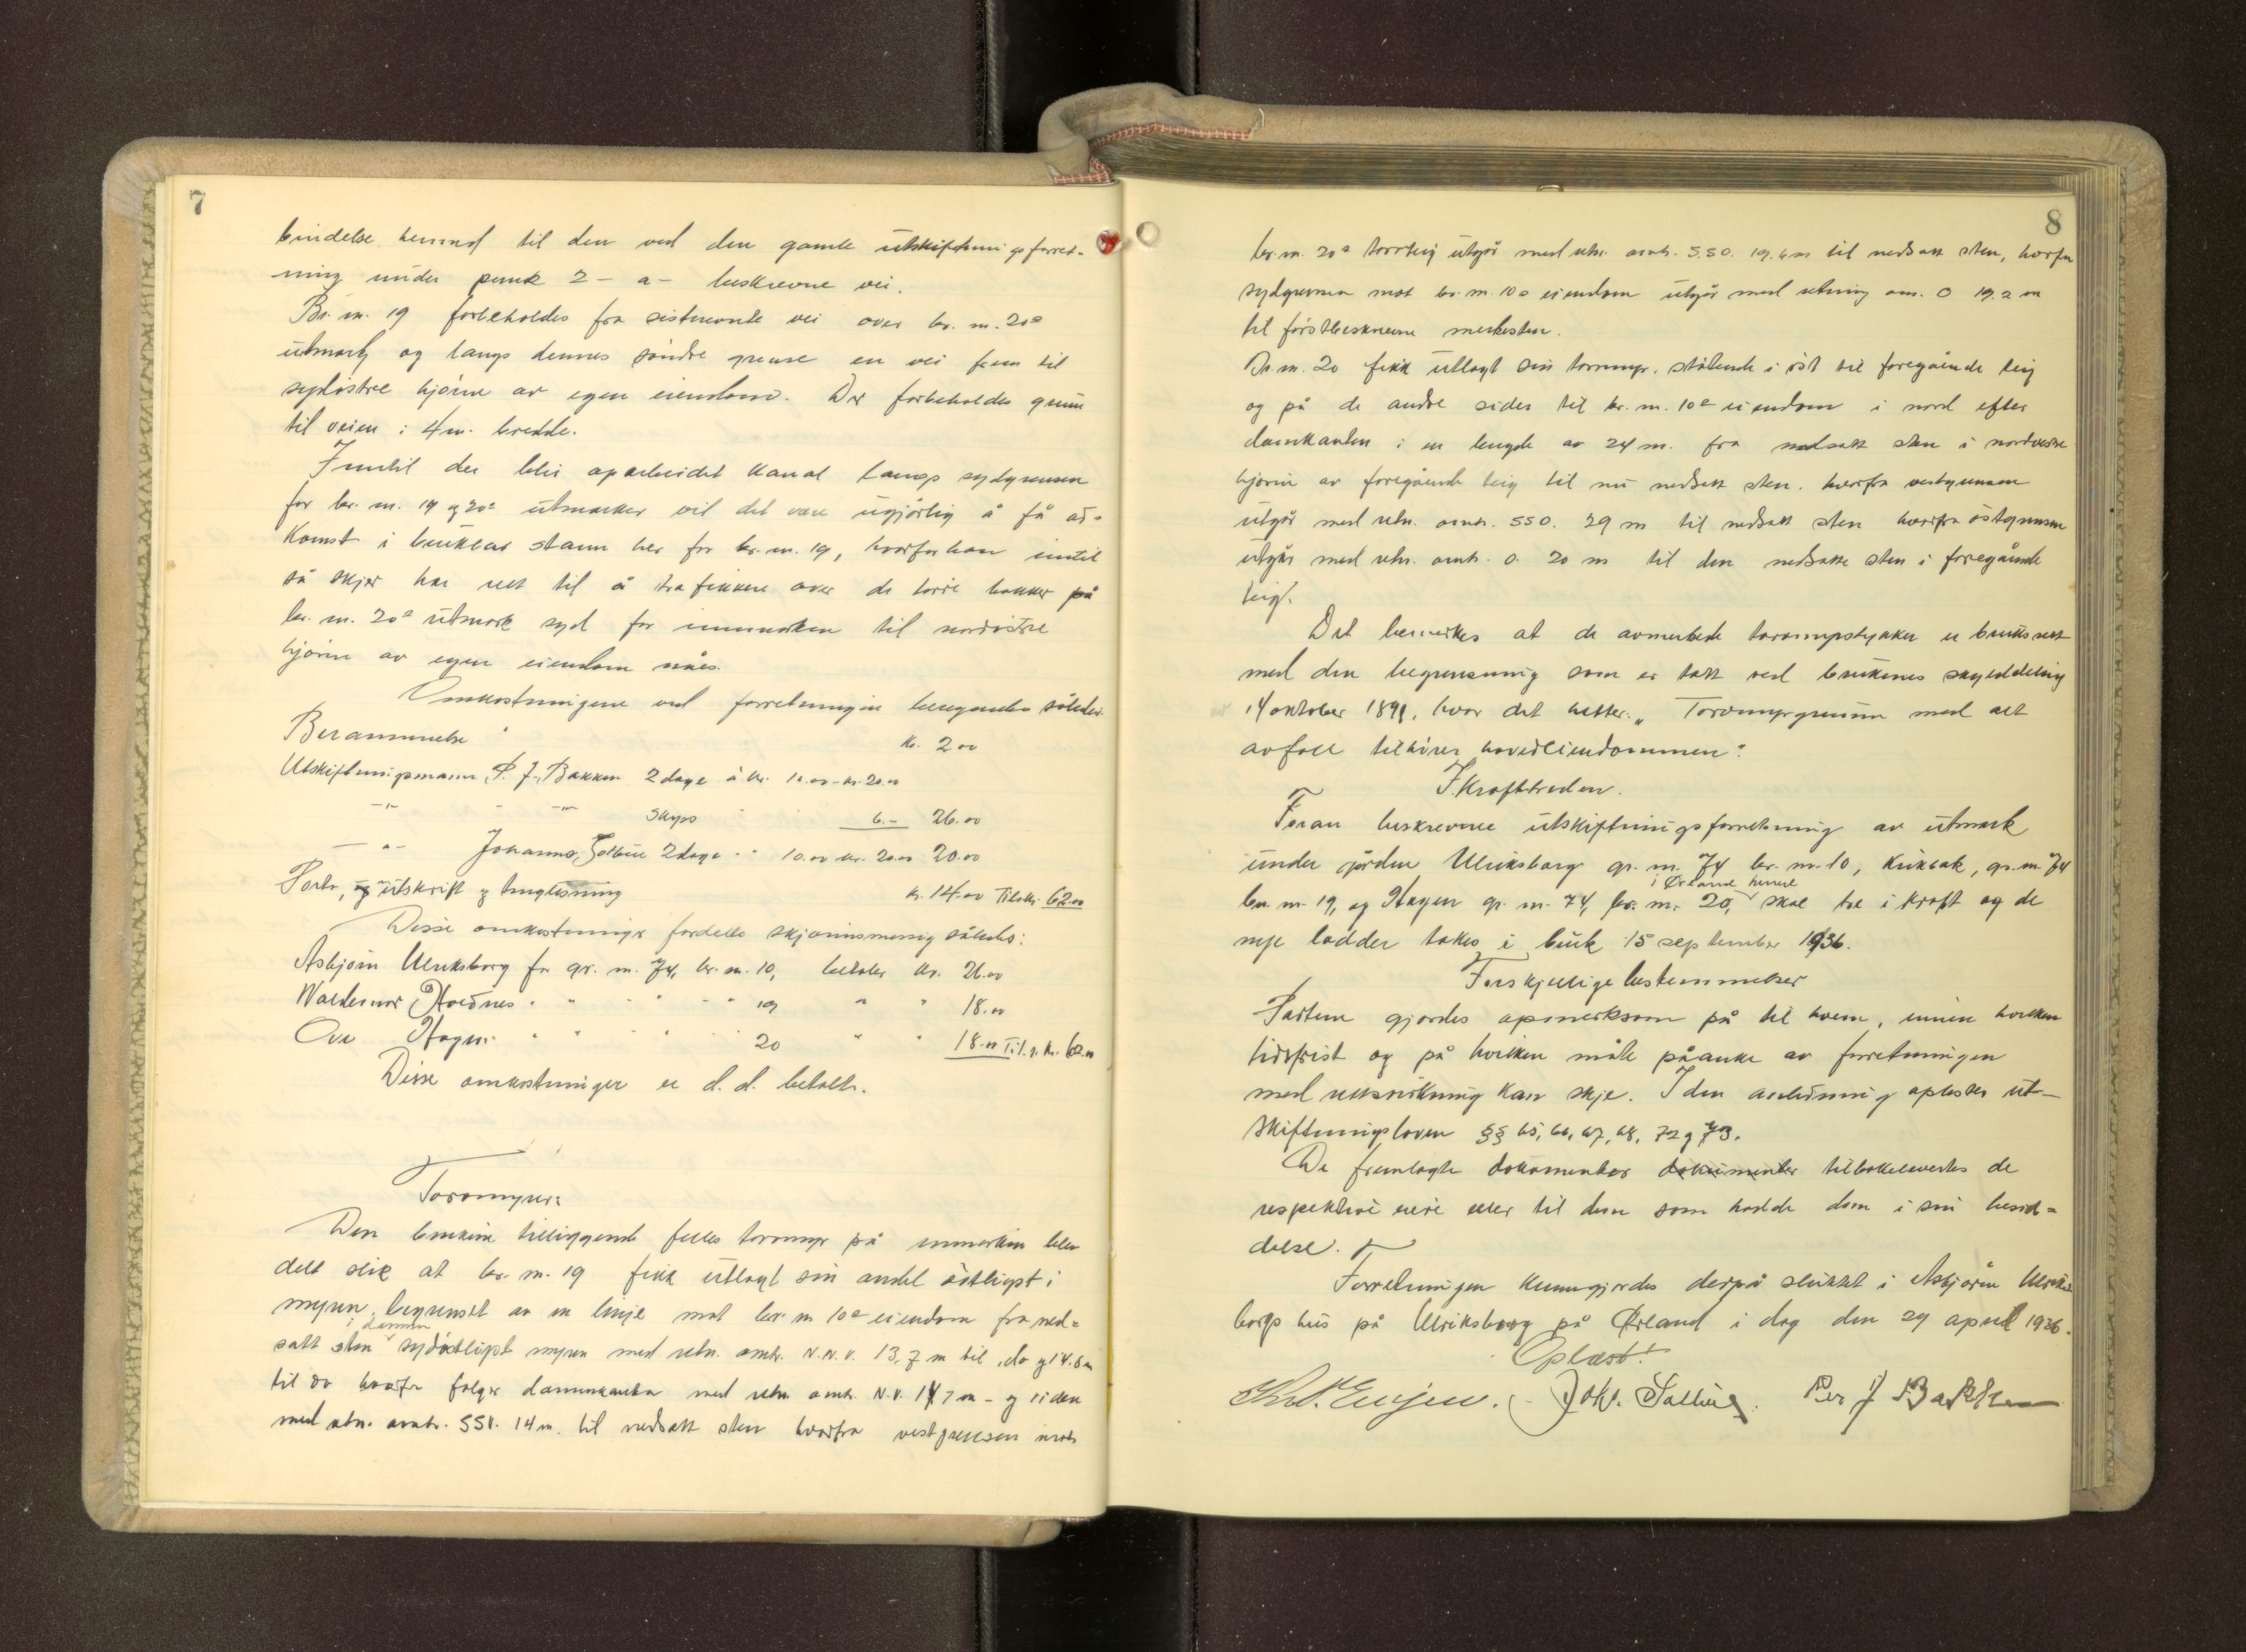 7
bindelse herved til den ved den gamle utskiftningsforret-
ning under punk 2 - a - beskrevne vei.
Br. nr. 19 forbeholdes fra sistnevnte vei over br. nr. 20s
utmark og langs dennes søndre grense en vei frem til
sydøstre hjørne av egen eiendom. Der forbeholdes grunn
til veien i 4m. bredde.
Inntil der blir oparbeidet kanal langs sydgrensen
for br. nr. 19 og 20s utmarker vil det være ugjørlig å få ad-
komst i brukbar stann her for br. nr. 19, hvorfor han inntil
så skjer har rett til å trafikkere over de tørre bakker på
br. nr. 20s utmark syd for innmarken til nordøstre
hjørne av egen eiendom nåes.
Omkostningene ved forretningen beregnedes således:
Berammelse kr. 2.00
Utskiftningsmann P. J. Bakken 2 dage à kr. 10.00 - kr. 20.00
-"- - -"- Skyss 6.- 26.00
-"- Johannes Solbue 2 dage " " 10.00 kr. 20.00 20.00
Porto, og utskrift og tinglesning kr. 14.00 Tils. kr. 62.00
Disse omkostninger fordeltes skjønnsmessig således:
Asbjørn Ulriksborg for gr. nr. 74, br. nr. 10, betaler kr. 26.00
Waldemar Hoednes " " " " " 19 " " 18.00
Ove Hagen " " " " " 20 " " 18.00 Til s. kr. 62.00
Disse omkostninger er d. d. betalt.
Torvmyren:
Den brukene tilliggende felles torvmyr på innmarken blev
delt slik at br. nr. 19 fikk utlagt sin andel østligst i
myren, begrenset av en linje mot br. nr 10s eiendom fra ned-
i dammen
satt sten sydøstligst myren med retn. omtr. N.N.V. 13,7 m til do og 14.8 m
til do hvorfra følger dammkanten med retn. omtr. N.V. 17 m - og siden
med retn. omtr. SSV. 14 m. til nedsatt sten hvorfra vestgrensen mot
8
br. nr. 20s torvteig utgår med retn. omtr. S.S.O. 19.6 m til nedsatt sten, hvorfra
sydgrensen mot br. nr. 10s eiendom utgår med retning om. O 19.2 m
til førstbeskrevne merkesten.
Br. nr. 20 fikk utlagt sin torvmyr. støtende i øst til foregående teig
og på de andre sider til br. nr. 10s eiendom i nord efter
damkanten i en lengde av 24 m. fra nedsatt sten i nordvestre
hjørne av foregående teig til nu nedsatt sten. hvorfra vestgrensen
utgår med retn. omtr. SSO. 29 m til nedsatt sten hvorfra østgrensen
utgår med retn. omtr. O. 20 m til den nedsatte sten i foregående
teig.
Det bemerkes at de avmerkede torvmyrstykker er bruksrett
med den begrensning som er tatt ved brukenes skylddeling
14 oktober 1891, hvor det hetter: „Torvmyrgrunn med alt
avfall tilhører hovedeiendommen".
Ikrafttreden.
Foran beskrevne utskiftningsforretning av utmark
under gården Ulriksborg gr. nr. 74 br. nr. 10, Kuksak, gr. nr. 74
i Ørland herred
br. nr. 19, og Hagen gr. nr. 74, br. nr. 20, skal tre i kraft og de
nye lodder takes i bruk 15 september 1936.
Forskjellige bestemmelser
Partene gjordes opmerksom på til hvem, innen hvilken
tidsfrist og på hvilken måte påanke av forretningen
med rettsvirkning kan skje. I den anledning oplestes ut-
skiftningsloven §§ 65, 66, 67, 68, 72 og 73.
De fremlagte dokumenter dokumenter tilbakelevertes de
respektive eiere eller til dem som hadde dem i sin besid-
delse.
Forretningen kunngjordes derpå sluttet i Asbjørn Ulriks-
borgs hus på Ulriksborg på Ørland i dag den 29 april 1936.
Oplest!
Joh. Solbue. Per J Bakken